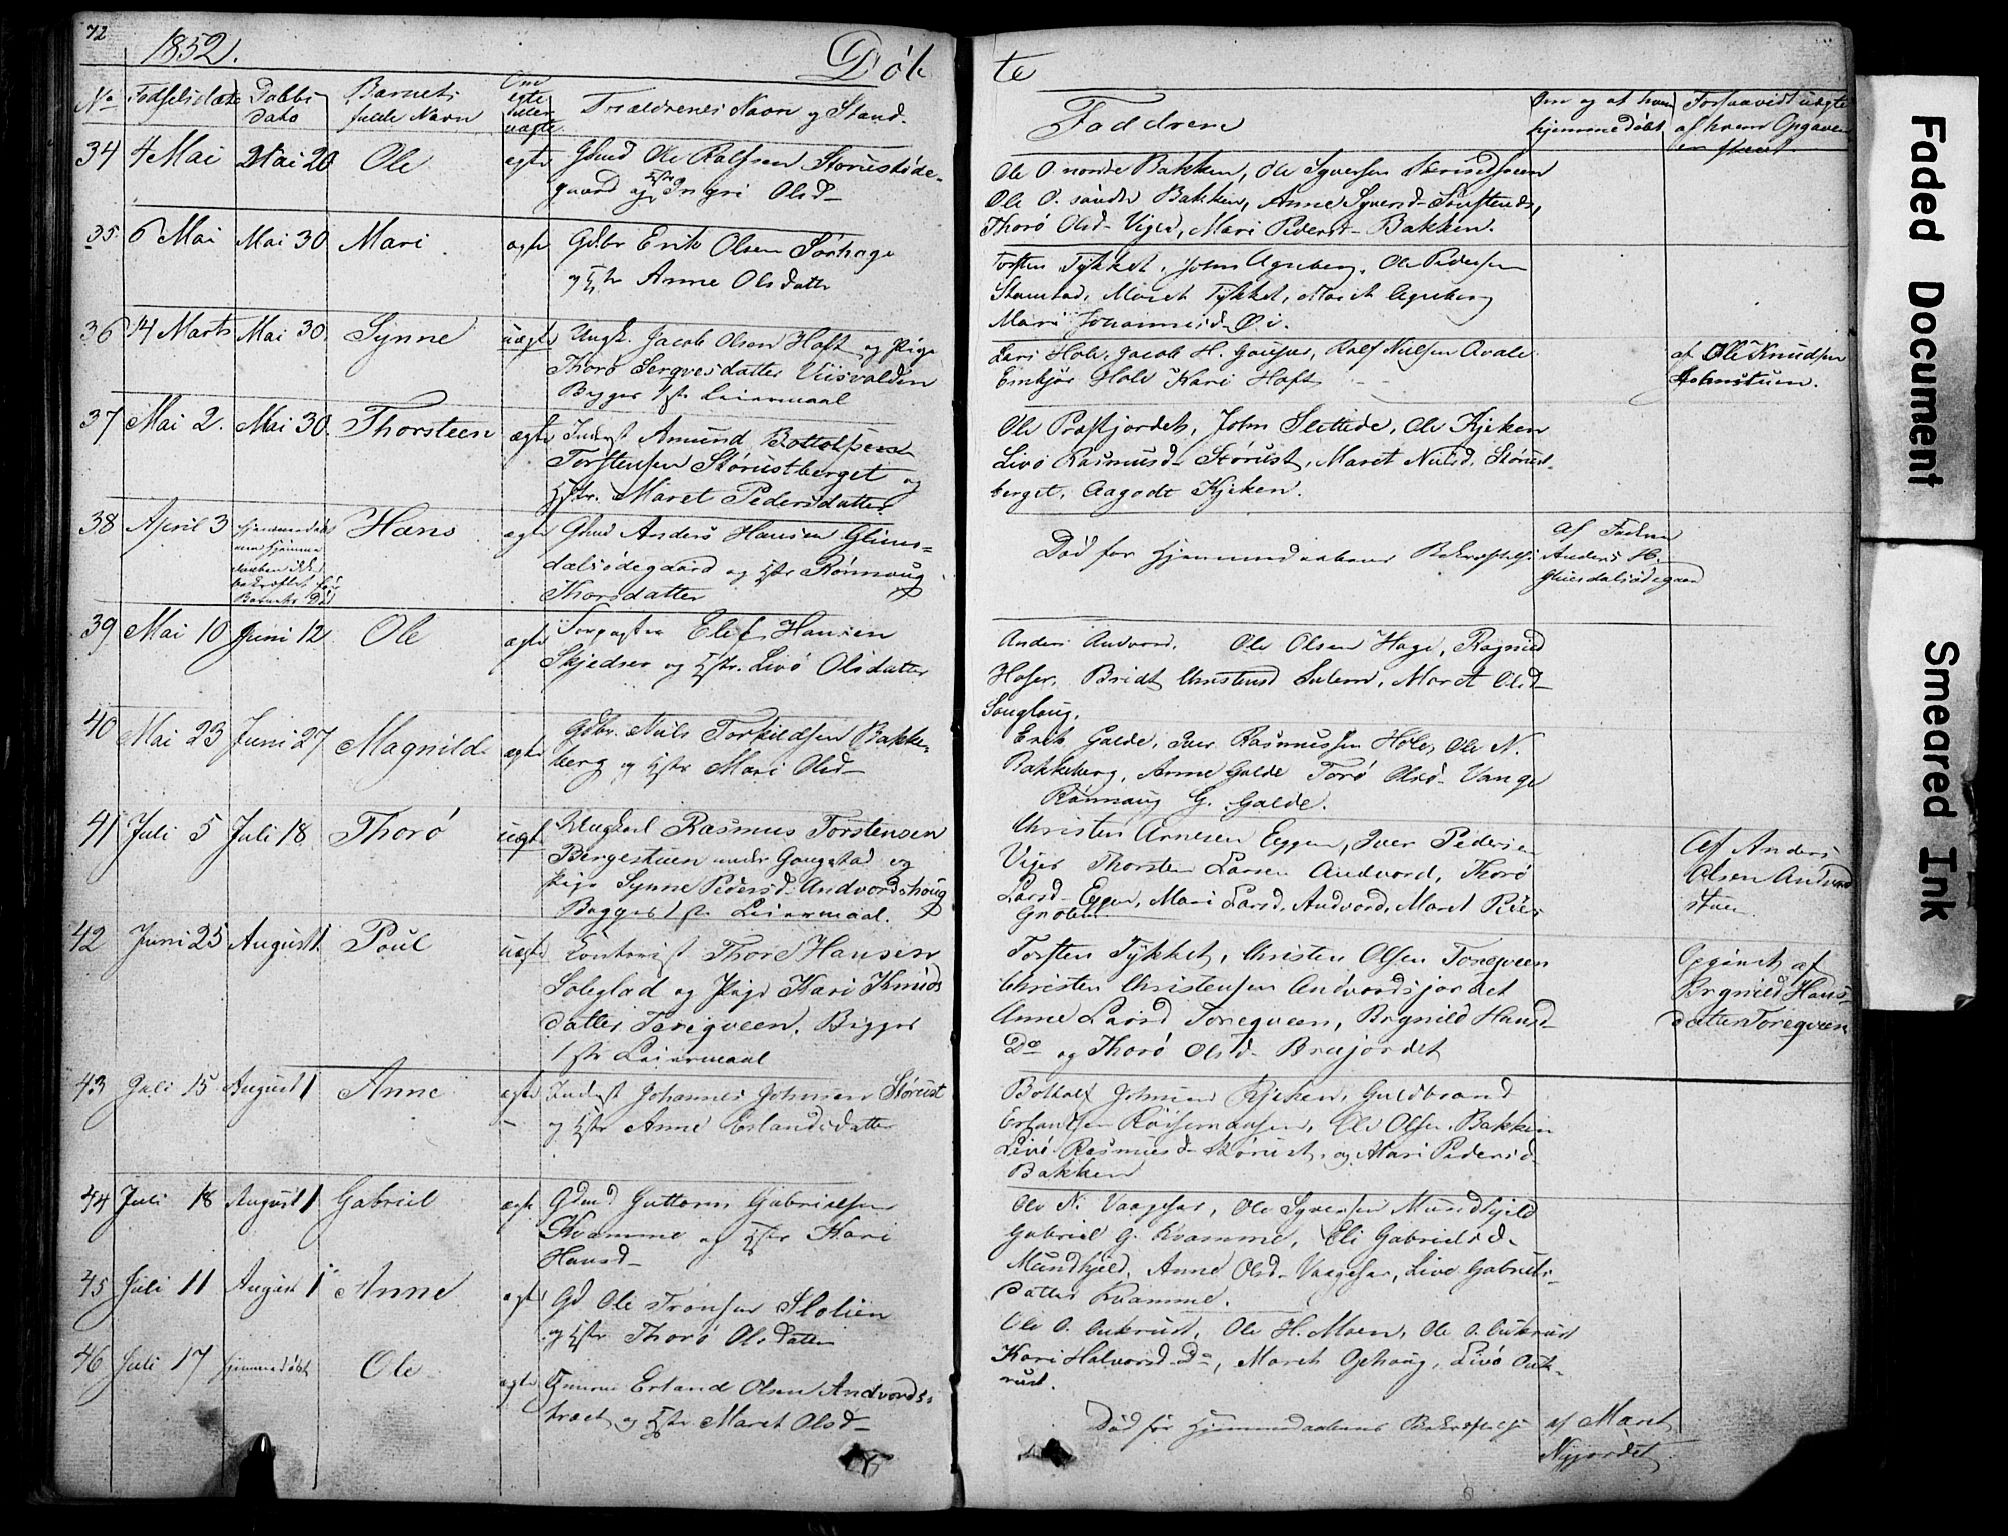 72
1852.
Døb
te
No Fødselsdato Daabs Barnets Om
dato fulde Navn ægte eller uægte Forældrenes Navn og Stand.
Faddere
Om og af hvem hjemmedøbt
Forsaavidt uægte af hvem Opgaven er skeet
34 4 Mai Mai 20 Ole ægte Gbmd Ole Rolfsen Storustøde-
gaard og Hstr Ingri Olsd-
Ole O. nordre Bakken, Ole Syversen
Ole O. søndre Bakken, Anne Syversd-
Thorø Olsd- Viger, Mari Pedersd- Bakken.
35. 6 Mai Mai 30 Mari ægte Gdbr Erik Olsen Sørhage
og Hstr Anne Olsdatter
Torsten Tykket, John Agneberg, Ole Pedersen
Stamstad, Maret Tykket, Maret Agneberg
Mari Johannesd- Øi.
36 14 Marts Mai 30. Synne uægte Ungk. Jacob Olsen Hoft og Pige
Thorø Sergvesdatter Viisvolden
Begges 1ste Leiermaal
Lars Hole, Jacob H. Gaupar, Rolf Nielsen
Hole Kari Hoft
af Ole Knudsen
Holmstuen.
37 Mai 2. Mai 30. Thorsteen ægte Inderst Amund Bottolfsen
Torstensen Størustberget og
Hstr. Maret Pedersdatter
Ole Præstjordet, John Slettede, Ole Kjeken
Livø Rasmusd- Størust, Maret Nielsd. Størust-
berget, Aagodt Kjeken.
38 April 3 hjemmedøbt
men hjemme
daaben ikke
bekræftet før
Barnets Død
Hans ægte Gbmd Anders Hansen Glims-
dalsødegaard og Hstr Rønnaug
Thorsdatter
Død før Hjemmedaabens Bekræftelse
af Faderen
Anders H.
Glimsdalsødegaard
39 Mai 10 Juni 12. Ole ægte Forpagter Elef Hansen
Skjedser og Hstr. Livø Olsdatter
Anders Andvord. Ole Olsen Hage, Ragnild
Hoser, Bridt Christensd Sulem, Maret Olsd-
Sanglaug.
40 Mai 23 Juni 27 Magnilde ægte Gdbr. Niels Torkildsen Bakke-
berg og Hstr Mari Olsd-
Erik Galde, Iver Rasmussen Hole, Ole N.
Bakkeberg, Anne Galde Torø Olsd- Vange
Rønnaug G. Galde.
41 Juli 5 Juli 18 Thorø uægte Ungkarl Rasmus Torstensen
Bergestuen under Gaugstad og
Pige Synne Pedersd- Andvordshoug
Begges 1ste Leiermaal.
Christen Arnesen Eggen, Iver Pedersen
Viger Thorsten Larsen Andvord, Thorø
Larsd- Eggen, Mari Larsd. Andvord, Maret Peders
Af Anders
Olsen Andvord
stuen
42 Juni 25 August 1 Poul uægte Thor Hansen
Soleglad og Pige Kari Knuds
datter Toreqveen, Begges
1ste Leiermaal
Torsten Tykket, Christen Olsen Toreqveen
Christen Christensen Andvordsjordet
Anne Larsd Toreqveen, Brynild Hansd-
Do og Thorø Olsd- Brujordet
Opgivet af
Brynild Hans-
datter Toreqveen
43 Juli 15 August 1 Anne ægte Inderst Johannes Johnsen Størust
og Hstr Anne Erlandsdatter
Bottolf Johnsen Kjeken, Guldbrand
Erlandsen Ole Olsen Bakken
Livø Rasmusd- Størust, og Mari Pedersd-
Bakken
44 Juli 18 August 1 Gabriel ægte Gbmd Guttorm Gabrielsen
Kvamme og Hstr Kari
Hansd-
Ole N. Vaagesar, Ole Syversen Mundhjeld
Gabriel G. Kvamme, Eli Gabrielsd-
Mundhjeld, Anne Olsd- Vaagesar, Live Gabriels-
datter Kvamme.
45 Juli 11 August 1 Anne ægte Gd Ole Tronsen Slolien
og Hstr Thorø Olsdatter
Ole O. Aukrust, Ole H. Moen, Ole O. Aukrust
Kari Halvorsd- Do, Maret Gehoug, Livø Auk-
rust.
46 Juli 17 hjemmedøbt Ole ægte Erland Olsen Andvords-
træet og Hstr Maret Olsd-
Død før Hjemmedaabens Bekræftelse
af Maret
Nyjordet
Faded Document
Smeared Ink